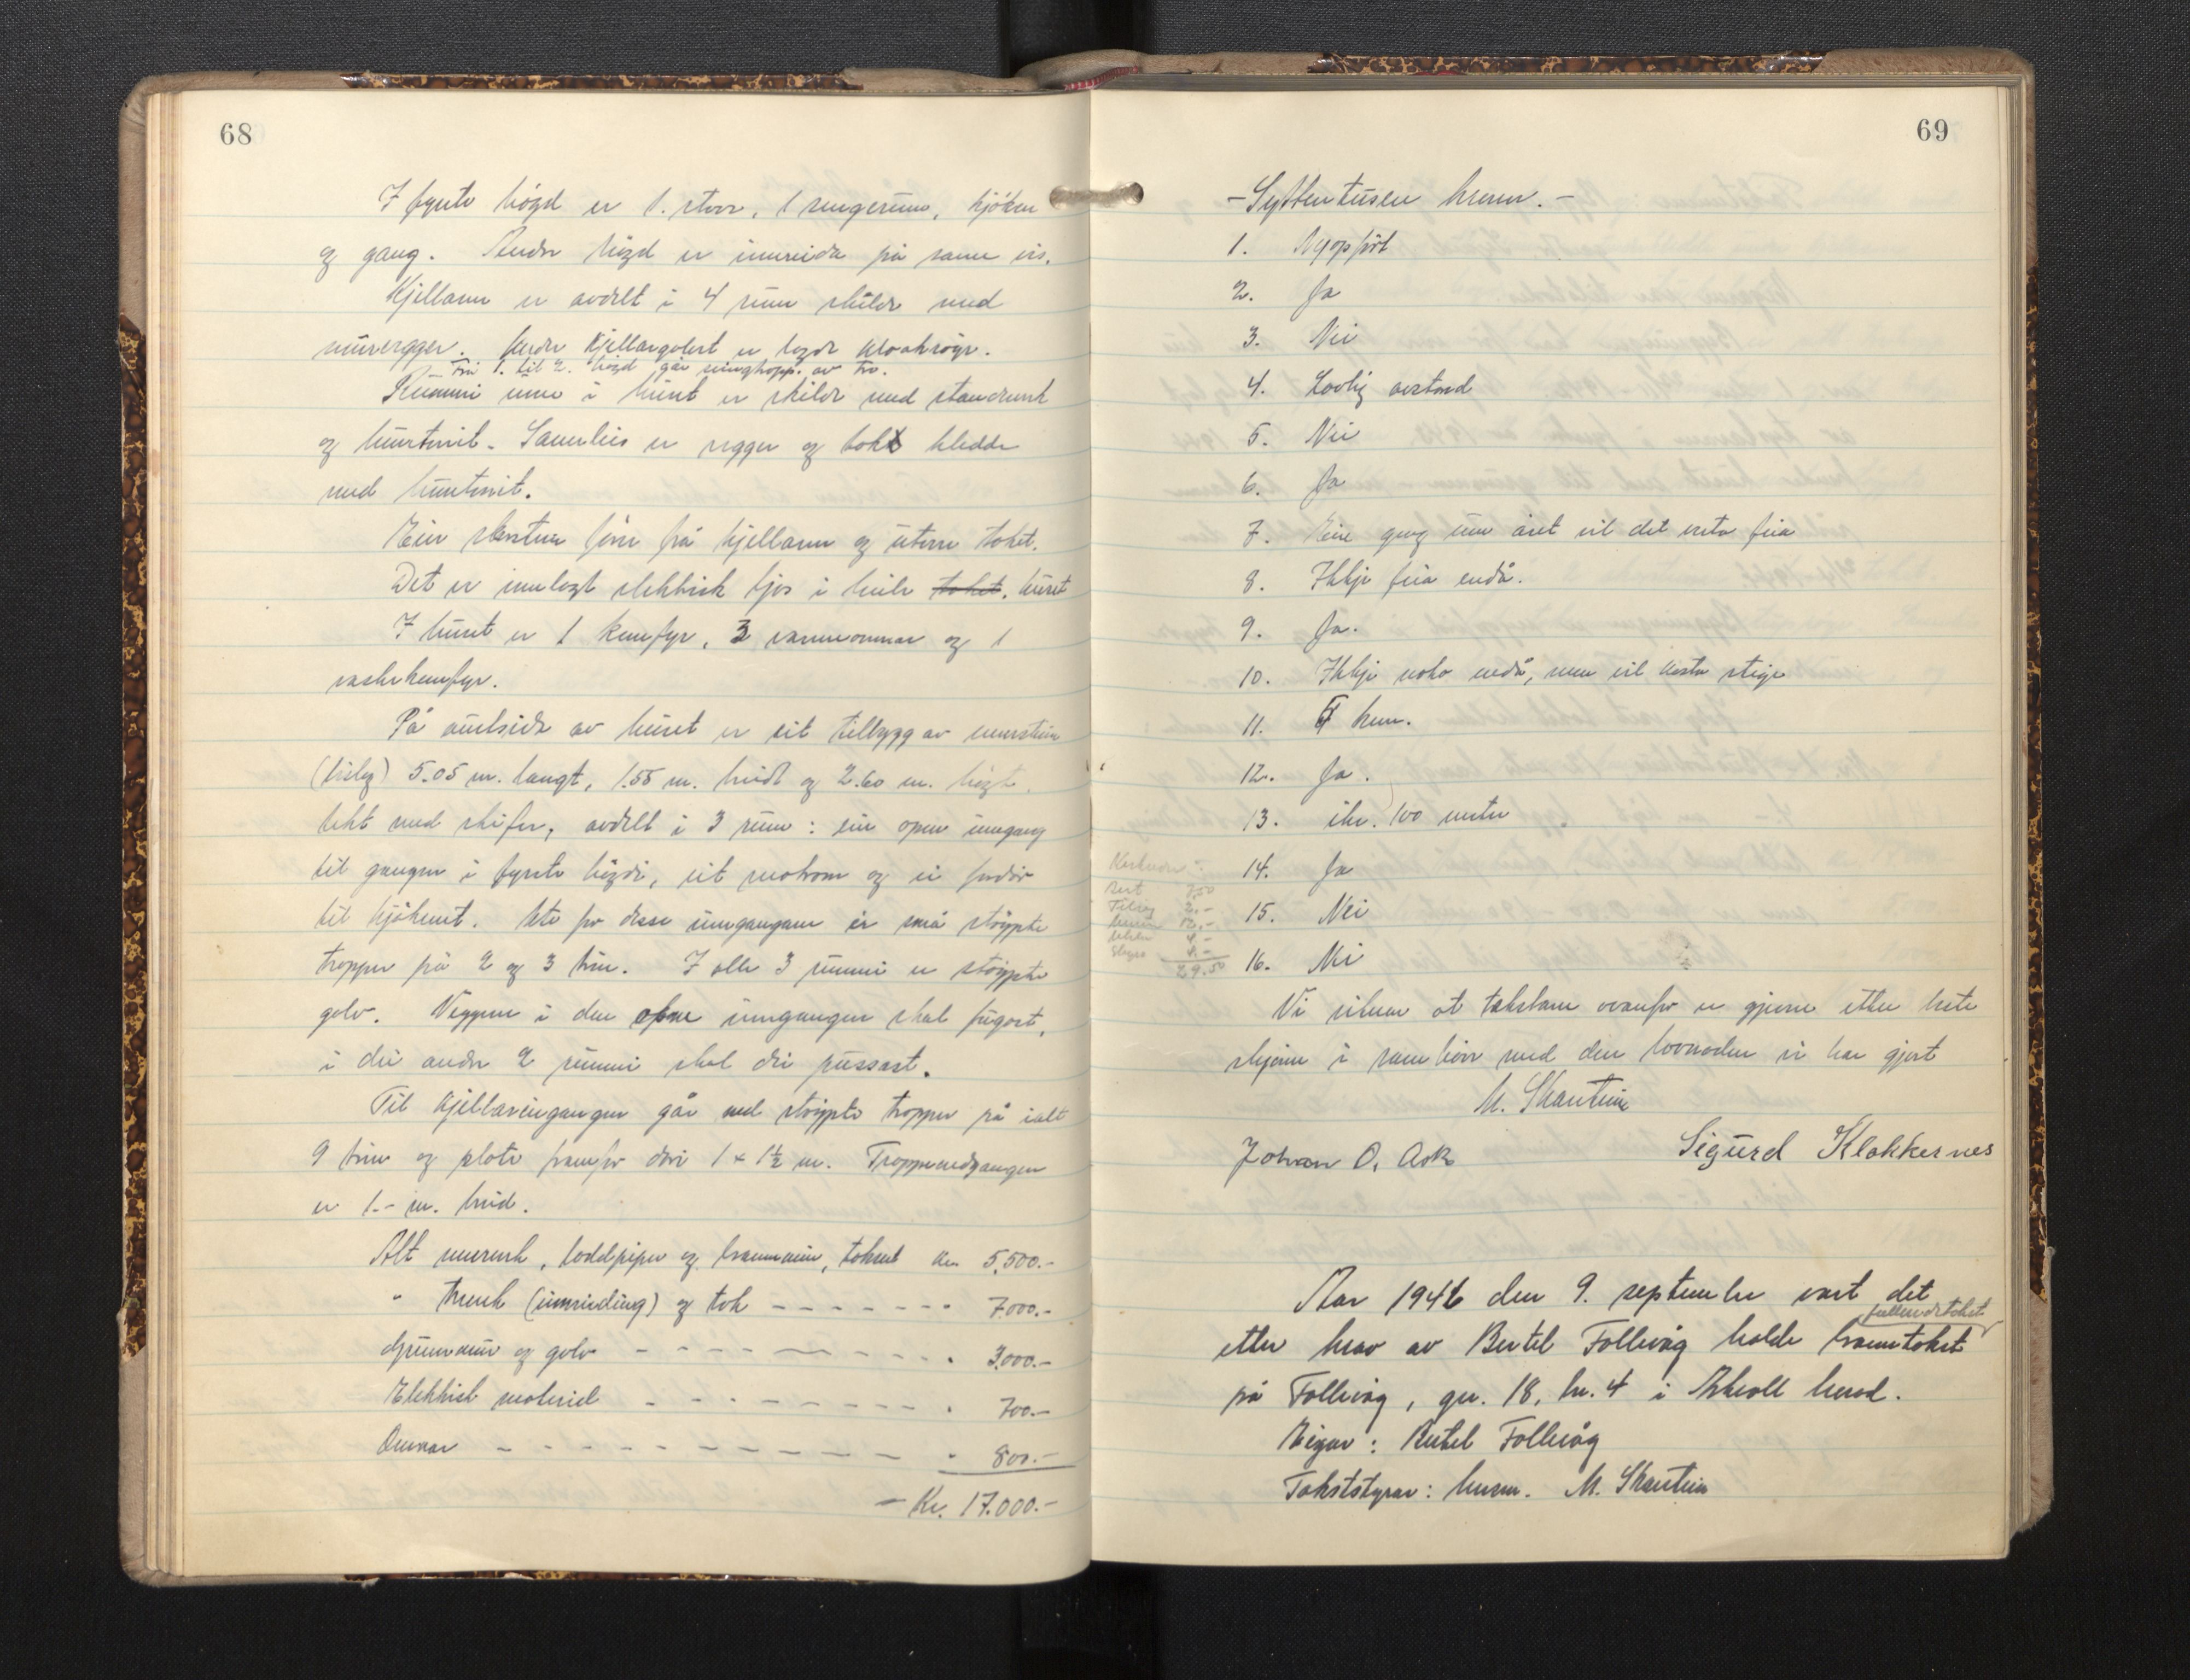 68
I fyrste högd er 1. stova, 1 sengerum, kjöken
og gang. Andre högd er innreida på same vis.
Kjellaren er avdelt i 4 rum skilde med
murvegger. Under kjellargolvet er lagde kloakrøyr.
Frå 1. til 2. högd går svingtropp av tre.
Rummi inne i huset er skilde med standverk
og huntonit. Samleis er vegger og tak kledde
med huntonit.
Ein skorstein före frå kjellaren og utover taket.
Det er innlagt elektrisk ljos i heile taket. huset
I huset er 1 komfyr, 3 varmeomnar og 1
vaskekomfyr.
På austsida av huset er eit tilbygg av murstein
(bislag) 5.05 m. langt, 1.55 m. breidt og 2.60 m. högt,
tekt med skifer, avdelt i 3 rum: ein open inngang
til gangen i fyrste högdi, eit matrom og ei fordör
til kjökenet. Ute for desse inngangane er små støypte
tropper på 2 og 3 trin. I alle 3 rummi er støypte
golv. Veggene i den opne inngangen skal fugast,
i dei andre 2 rummi skal dei pussast.
Til kjellarinngangen går ned støypte tropper på ialt
9 trin og plate framfor döri 1 x 1½ m. Troppenedgangen
er 1.- m. breid.
Alt murverk, loddpiper og brannmur, taksert kr. 5.500.-
" treverk (innreiding) og tak - - - - - - - 7.000.-
Grunnmur og golv - - - - - - - - - - 3.000.-
Elektrisk materiel - - - - - - - - - 700.-
Omnar - - - - - - - - - - - - 800.-
- Kr. 17.000.-
69
- Syttentusen kroner. -
1. Nyoppført
2. Ja
3. Nei
4. Lovlig avstand
5. Nei
6. Ja
7. Eine gong um året vil det verta feia
8. Ikkje feia endå.
9. Ja.
10. Ikkje noko endå, men vil verta stige
11. 6 km.
12. Ja.
13. ikr. 100 meter
14. Ja
15. Nei
16. Nei
Kostnader:
2,50
2.-
12,-
4.-
29.50
Vi vitnar at takstane ovanfor er gjevne etter beste
skjönn i samhöve med den lovnaden vi har gjort
M. Skantein
Johan O. Ask
Sigurd Klokkernes
Aar 1946 den 9. september vart det
fullverdetakst
etter krav av Bertel Follevåg halde branntakst
på Follevåg, gnr. 18, br. 4 i Askvoll herad.
Eigar: Bertel Follevåg
Takststyrar: lensm. M. Skantein